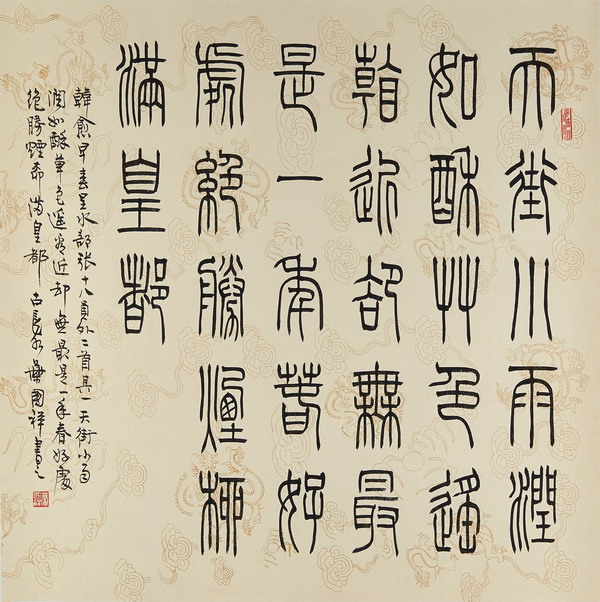 天街小雨潤
如酥艸色遙
看近却無最
是一年春好
處絕勝煙柳
滿皇都
韓愈早春呈水部张十八員外二首其一天街小雨
潤如酥草色遙看近却無最是一年春好處
絕勝煙柳滿皇都 國祥書之